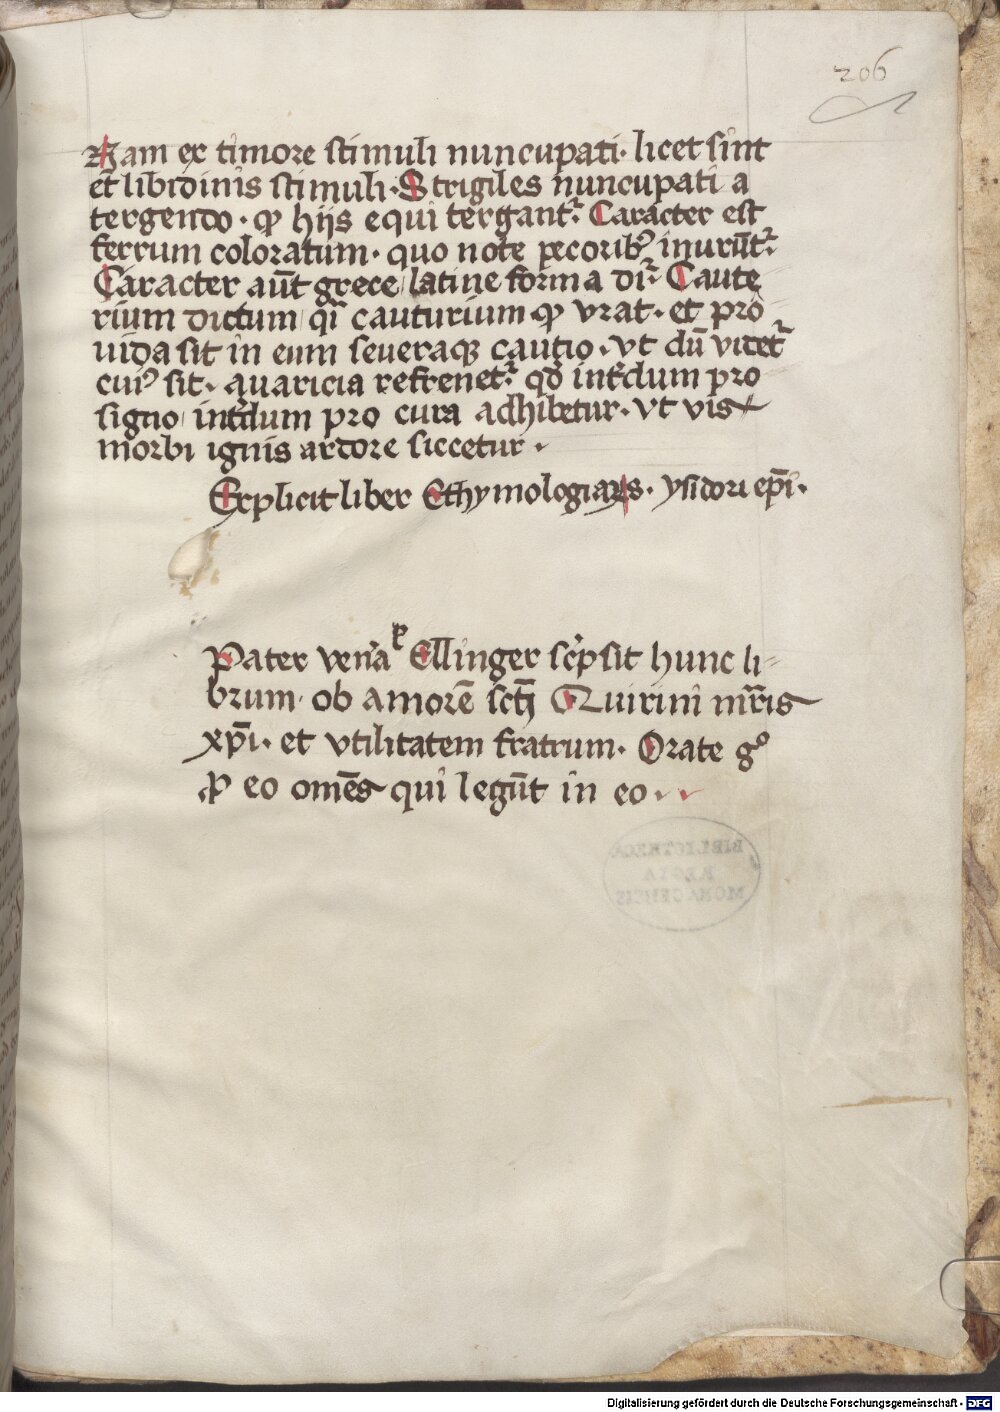 206
Nam ex timore stimuli nuncupati· licet sint
et libidinis stimuli· Strigiles nuncupati a
tergendo· ꝙ hijs equi tergantᷣ· Caracter est
ferrum coloratum· quo note pecoribꝰ inurūtᷣ·
Caracter aūt grece latine forma diᷣ· Caute
rium dictum qi̾ cauturium ꝙ vrat· et pro
uida sit in eum seueraqꝫ cautio· vt dū videtᷣ
cuiꝰ sit· auaricia refrenetᷣ· qd̓ int̓dum pro
signo int̓dum pro cura adhibetur· vt vis
morbi ignis ardore siccetur·
Explicit liber Ethymologiaꝝs· ysidori ep̄i·
Pater ven̓a Ellinger sc̓psit hunc li-
brum· ob amorē sct̄i Quirini mr̄is
xp̄i· et vtilitatem fratrum· Orate gͦ
ꝓ eo om̄es qui legūt in eo·
BIBLIOTHECA
REGIA
MONACENSIS
Digitalisierung gefördert durch die Deutsche Forschungsgemeinschaft - DFG